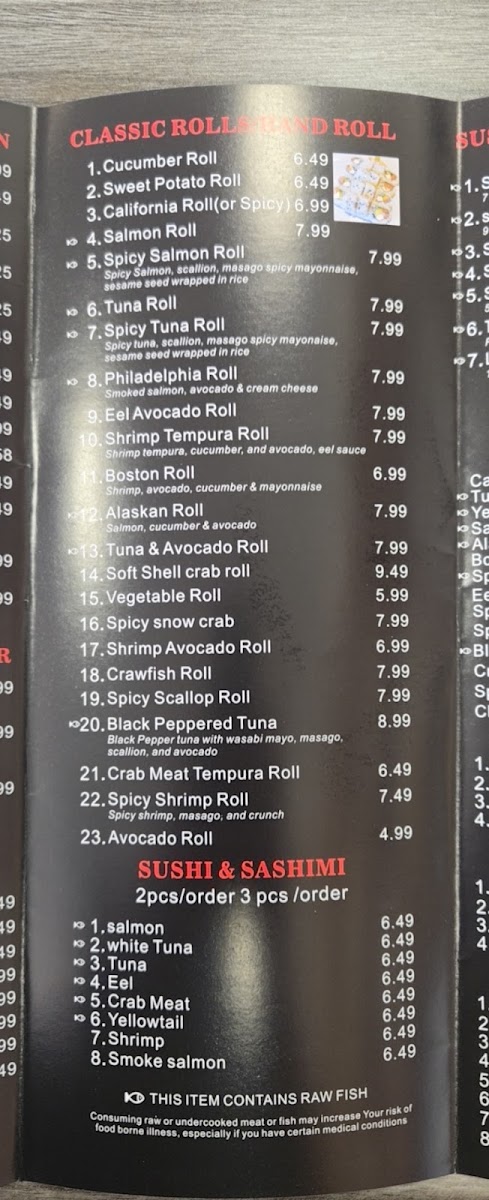 CLASSIC ROLLS HAND ROLL
1. Cucumber Roll 6.49
2. Sweet Potato Roll 6.49
3. California Roll(or Spicy) 6.99
4. Salmon Roll 7.99
5. Spicy Salmon Roll 7.99
Spicy Salmon, scallion, masago spicy mayonnaise,
sesame seed wrapped in rice
6. Tuna Roll 7.99
7. Spicy Tuna Roll 7.99
Spicy tuna, scallion, masago spicy mayonaise,
sesame seed wrapped in rice
8. Philadelphia Roll 7.99
Smoked salmon, avocado & cream cheese
9. Eel Avocado Roll 7.99
10. Shrimp Tempura Roll 7.99
Shrimp tempura, cucumber, and avocado, eel sauce
11. Boston Roll 6.99
Shrimp, avocado, cucumber & mayonnaise
12. Alaskan Roll 7.99
Salmon, cucumber & avocado
13. Tuna & Avocado Roll 7.99
14. Soft Shell crab roll 9.49
15. Vegetable Roll 5.99
16. Spicy snow crab 7.99
17. Shrimp Avocado Roll 6.99
18. Crawfish Roll 7.99
19. Spicy Scallop Roll 7.99
20. Black Peppered Tuna 8.99
Black Pepper tuna with wasabi mayo, masago,
scallion, and avocado
21. Crab Meat Tempura Roll 6.49
22. Spicy Shrimp Roll 7.49
Spicy shrimp, masago, and crunch
23. Avocado Roll 4.99
SUSHI & SASHIMI
2pcs/order 3 pcs /order
1. salmon 6.49
2. white Tuna 6.49
3. Tuna 6.49
4. Eel 6.49
5. Crab Meat 6.49
6. Yellowtail 6.49
7. Shrimp 6.49
8. Smoke salmon 6.49
THIS ITEM CONTAINS RAW FISH
Consuming raw or undercooked meat or fish may increase Your risk of
food borne illness, especially if you have certain medical conditions